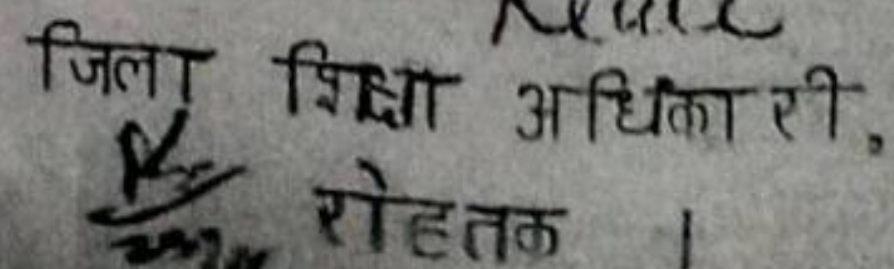 जिला शिक्षा अधिकारी,
रोहतक ।